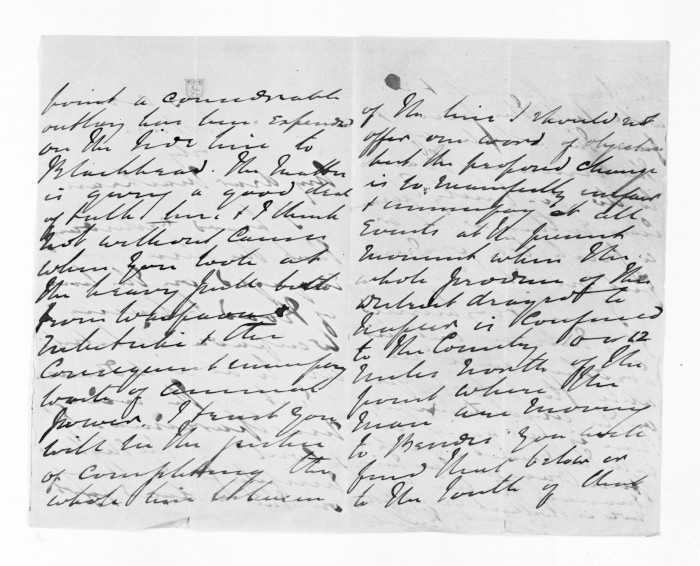 point a considerable
outlay has been expended
on the side line to
Blackhead. The matter
is giving a good deal
of talk here & I think
not without cause
when you look at
the heavy pull both
from Waipawa &
the
consequent unnecessary
waste of animal
power. I trust you
will see the justice
of completing the
whole line between
of the line I should not
offer one word of objection
but the proposed change
is so manifestly unfair
& unnecessary at all
events at the present
moment when the
whole produce of the
district drayed to
Napier is confined
to the Country 10 or 12
miles North of the
point where the
men are moving
to. Besides you will
find that below or
to the South of that